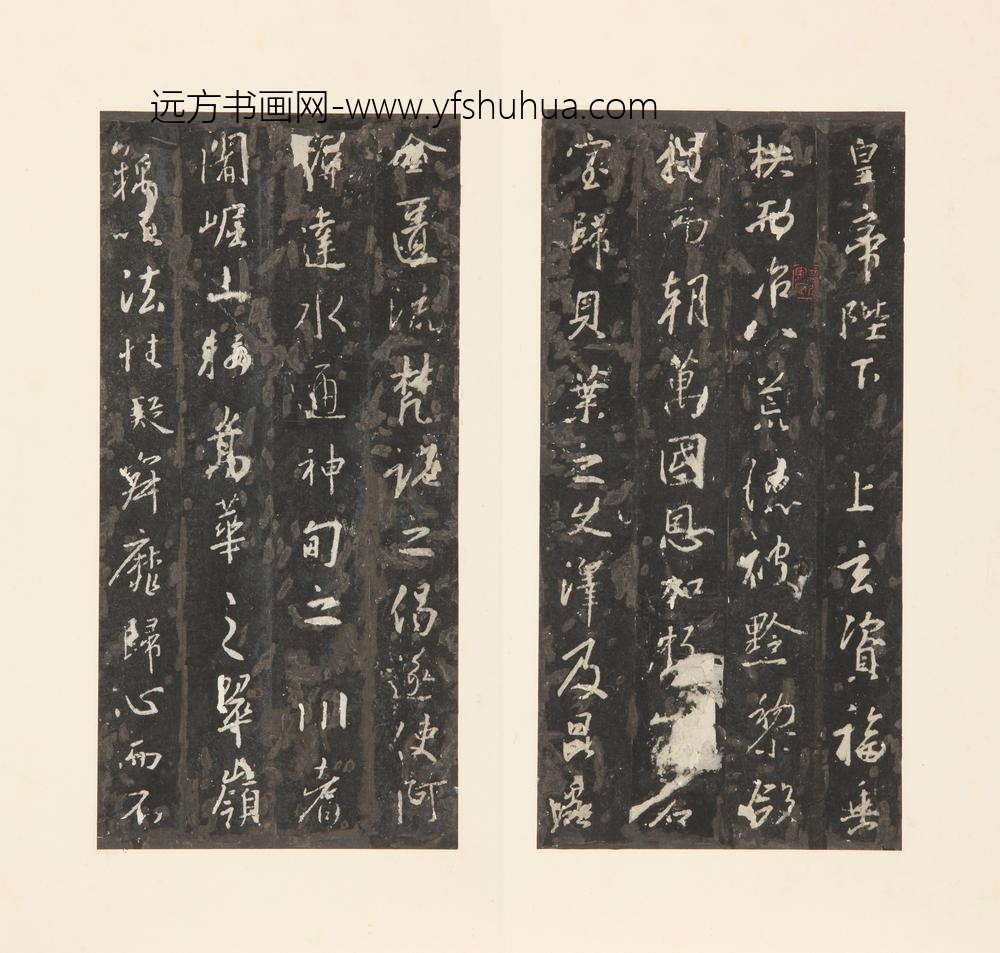 远方书画网-www.yfshuhua.com
皇帝陛下 上玄資福垂
拱而治八荒德被黔黎斂
衽而朝萬國恩加朽石
室歸貝葉之文澤及昆蟲
金匱流梵説之偈遂使阿
耨達水通神甸之川耆
闍崛山接嵩華之翠嶺
竊以法性凝寂靡歸心而不